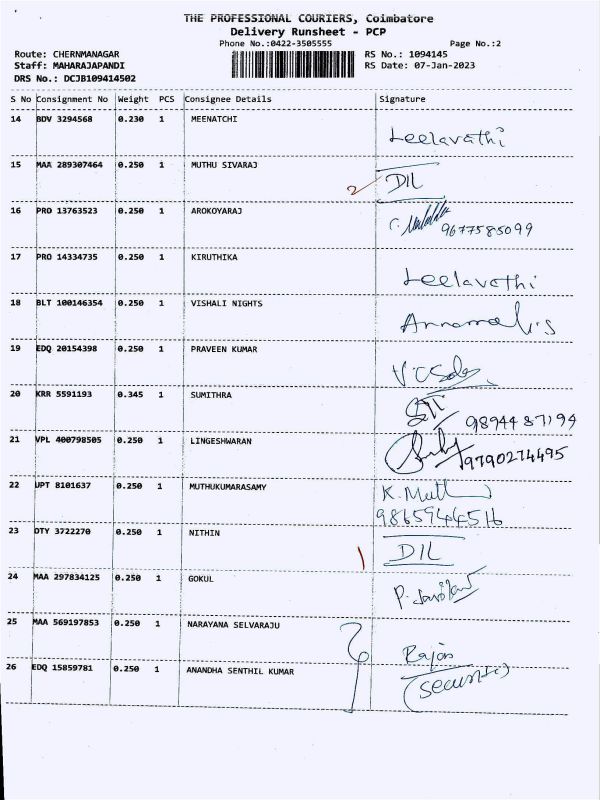 THE PROFESSIONAL COURIERS, Coimbatore
Delivery Runsheet - PCP
Phone No.:0422-3505555 Page No.:2
Route: CHERNMANAGAR RS No.: 1094145
Staff: MAHARAJAPANDI RS Date: 07-Jan-2023
DRS No.: DCJB109414502
S No Consignment No Weight PCS Consignee Details Signature
14 BDV 3294568 0.230 1 MEENATCHI
Leelavathi
15 MAA 289307464 0.250 1 MUTHU SIVARAJ
2 DIL
16 PRO 13763523 0.250 1 AROKOYARAJ
9677585099
17 PRO 14334735 0.250 1 KIRUTHIKA
Leelavathi
18 BLT 100146354 0.250 1 VISHALI NIGHTS
19 EDQ 20154398 0.250 1 PRAVEEN KUMAR
20 KRR 5591193 0.345 1 SUMITHRA
9894487194
21 VPL 400798505 0.250 1 LINGESHWARAN
9790274495
22 UPT 8101637 0.250 1 MUTHUKUMARASAMY
K. Muth
9865944516
23 DTY 3722270 0.250 1 NITHIN
1 DIL
24 MAA 297834125 0.250 1 GOKUL
25 MAA 569197853 0.250 1 NARAYANA SELVARAJU
Rajan
26 EDQ 15859781 0.250 1 ANANDHA SENTHIL KUMAR